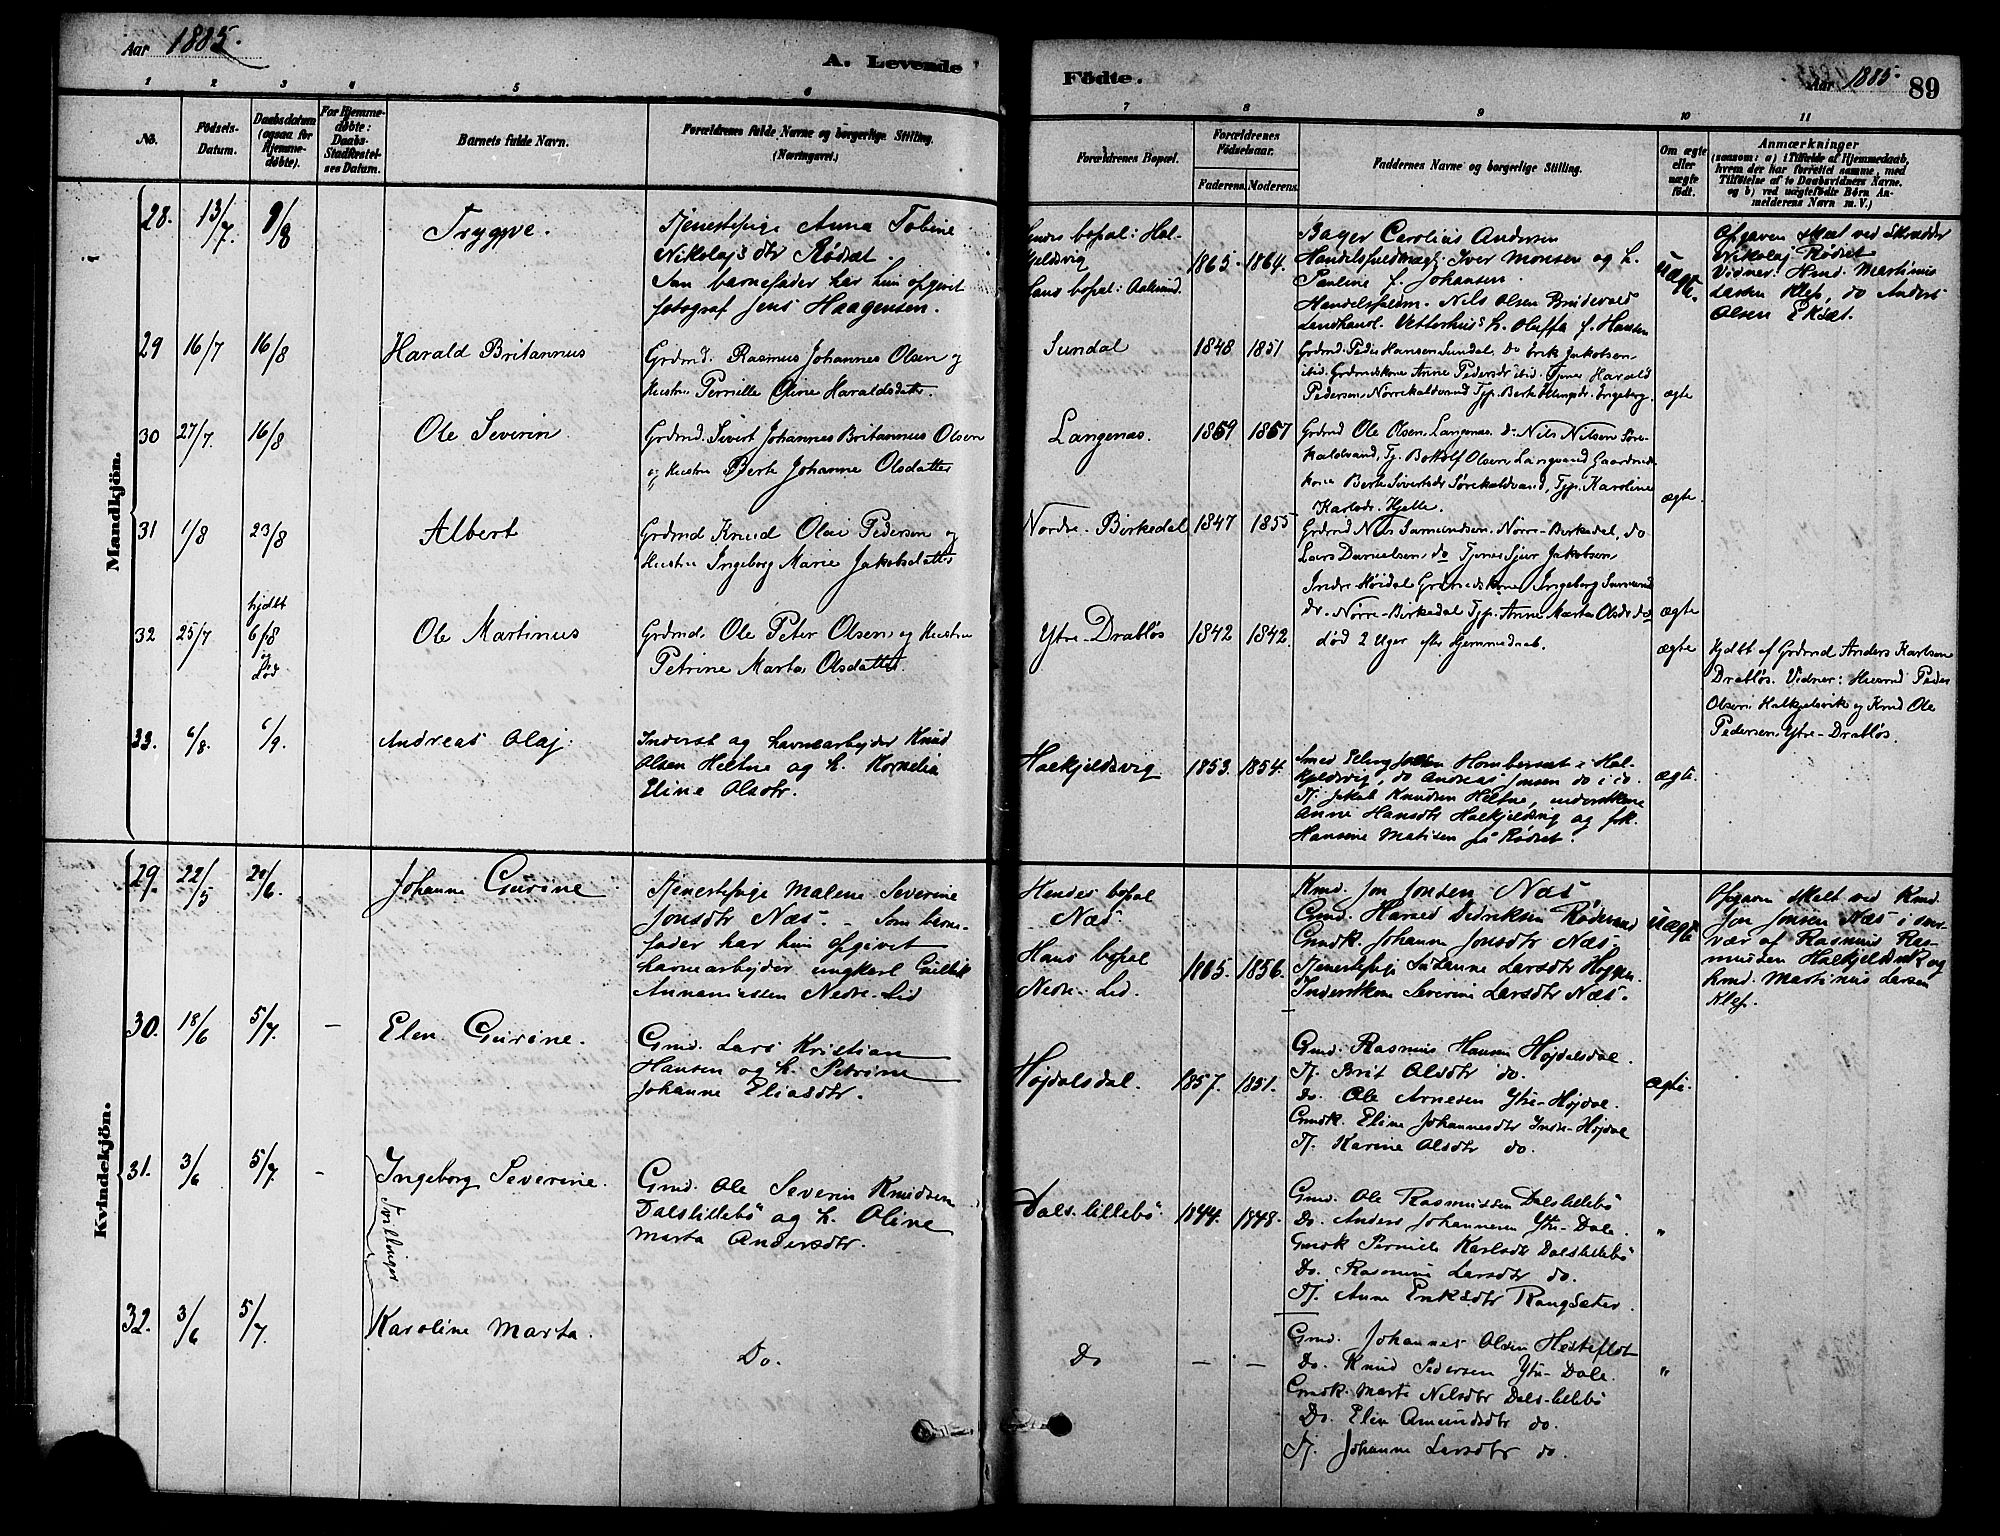 Aar 1885.
A. Levende
Fødte.
Aar 1885.
89
1
2
3
4
5
6
7
8
9
10
11
No.
Fødsels-
Datum.
Daabsdatum
(ogsaa for
Hjemme-
døbte).
For Hjemme-
døbte:
Daabs-
Stadfæstel-
ses Datum.
Barnets fulde Navn.
Forældrenes fulde Navne og borgerlige Stilling.
(Næringsvei.)
Forældrenes Bopæl.
Forældrenes
Fødselsaar.
Faderens.
Moderens.
Faddernes Navne og borgerlige Stilling.
Om ægte
eller
uægte
født.
Anmærkninger
(saasom: a) i Tilfælde af Hjemmedaab,
hvem der har forrettet samme, med
Tilføielse af to Daabsvidners Navne.
og b) ved uægtefødte Børn An-
melderens Navn m. V.)
Mandkjön.
28.
13/7.
9/8
Trygve.
Tjenestepige Anna Tobine
Nikolajsdtr Rødset.
Som barnefader har hun opgivet
fotograf Jens Haagensen.
Hendes bopæl: Hal-
kjeldsvig
Hans bopæl: Aalesund.
1865.
1864.
Bager Carolius Andersen
Handelsfuldmægt. Iver Monsen og h.
Pauline f. Johansen
Handelsfuldm. Nils Olsen Brudevold
Landhandl. Vetterhus h. Oluffa f. Hansen
uægte.
Opgaven skeet ved Skrædder
Nikolaj Rødset
Vidner: Hmd. Martinus
Larsen Klep, do Anders
Olsen Eksæt.
29
16/7
16/8
Harald Britannus
Grdmd. Rasmus Johannes Olsen og
Hustru Pernille Oline Haraldsdatter.
Sundal
1848
1851
Grdmd Peder Hansen Sundal. Do Erik Jakobsen
ibid. Grdmdskone Anne Pedersdr ibid. Tjener Harald
Pedersen, Nörrekaldvand Typ. Berte Olinesdr. Ingeberg.
ægte
30
27/7.
16/8
Ole Severin.
Grdmd. Sivert Johannes Britannus Olsen
og Hustru Berte Johanne Olsdatter
Langenæs.
1859
1857
Grdmd Ole Olsen, Langenæs. do Nils Nilsen Søre-
kaldvand, Tj. Bottolf Olsen Langvand Gaardmds
kone Berte Sivertsdr Sørekaldvand, Typ. Karoline
Karlsdr. Hjelle.
ægte
31
1/8
23/8
Albert
Grdmd Knud Olai Pedersen og
Hustru Ingeborg Marie Jakobsdatter
Nordre-Birkedal
1847
1855
Grdmd Nils Samundsen. Nörre-Birkedal, do
Lars Danielsen, do Tjener Sjur Jakobsen
Indre-Höidal Grdmdskone Ingeborg Samund
dr. Nörre-Birkedal Typ. Anne Marta Olsdr do
ægte
32
25/7
hjdbt
6/8
og
död
Ole Martinus
Grdmd. Ole Peter Olsen og Hustru
Petrine Marta Olsdatter.
Ytre-Drabløs
1842
1842.
död 2 Uger efter Hjemmedaab.
ægte
Hjdbt af Grdmd Anders Karlsen
Drabløs. Vidner: Husmd Peder
Olsen Halkjelsvik og Kmd Ole
Pedersen Ytre-Drabløs.
33.
6/8.
6/9.
Andreas Olaj.
Inderst og havnearbejder Knud
Olsen Heltne og h. Kornelia
Eline Olsdtr.
Halkjeldsvig
1853.
1854.
Smed Elling Hombersæt i Hal-
kjeldsvig, do Andreas Jonsen do i do.
Tj. Jakob Knudsen Heltne, inderstkone
Anne Hansdtr Halkjeldsvig og frk.
Hansine Matisen på Rødset.
ægte.
Kvindekjön.
29.
22/5
20/6.
Johanne Gurine
Tjenestepige Malene Severine
Jonsdtr Næs. - Som barne-
fader har hun opgivet
havnearbejder ungkarl
Annaniassen Nedre-Lid
Hendes bopæl
Næs.
Hans bopæl
Nedre-Lid.
1865.
1856.
Kmd. Jon Jonsen Næs
Gmd. Harald Didriksen Rødesand
Gmdk. Johanne Jonsdtr Næs.
Tjenestepige Susanne Larsdtr Hoggen.
Inderstkone Severine Larsdtr Næs.
uægte
Opgaven skelt ved Kmd.
Jon Jonsen Næs i over-
vær af Rasmus Ras-
mussen Halkjeldsvik og
Kmd. Martinus Larsen
Klep.
30.
18/6
5/7.
-
Elen Gurine.
Gmd. Lars Kristian
Hansen og h. Petrine
Johanne Eliasdtr.
Højdalsdal.
1857.
1851.
Gmd. Rasmus Hansen Højdalsdal.
Tj. Brit Olsdtr do.
Do. Ole Arnesen Ytre-Højdal.
Gmdk. Eline Johannesdtr Indre-Højdal
Tj. Karine Olsdtr do.
ægte.
31.
3/6
5/7.
-
Ingeborg Severine.
Tvillinger
Gmd. Ole Severin Knudsen
Dalslillebö og h. Oline
Marta Andersdtr.
Dalslillebö.
1844.
1848.
Gmd. Ole Rasmussen Dalslillebö
Do. Anders Johannesen Ytre-Dale.
Gmdk Pernille Karlsdtr Dalslillebö
Do. Rasmine Larsdtr do.
Tj. Anne Eriksdtr Rangsæter.
"
32.
3/6
5/7.
Karoline Marta.
Do.
Do
-
-
Gmd. Johannes Olsen Hesteflot
Do. Knud Pedersen Ytre-Dale.
Gmdk. Marte Nilsdtr Dalslillebö
Do. Elen Amundsdtr do.
Tj. Johanne Larsdtr do.
"